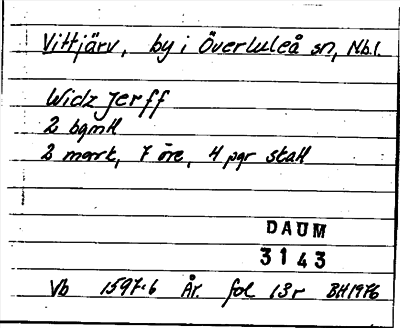 Vittjärv, by i Överluleå sn, Nb.l.
Widz Jerff
2 bgmtl
2 mark, 7 öre, 4 pgr skatt
DAUM
3143
Vb 1597:6 År. fol 13r BH1976